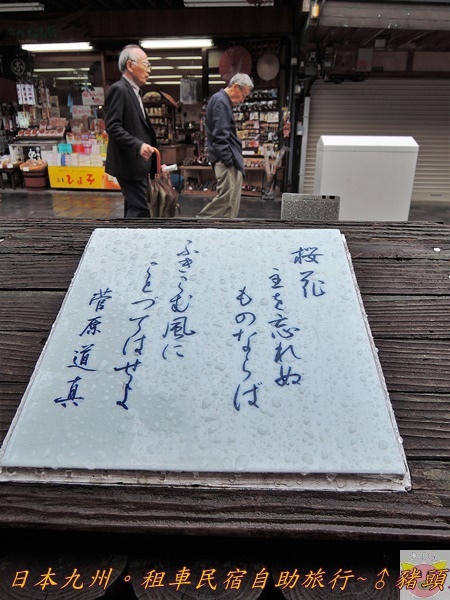 桜花
主を忘れぬ
ものならば
ふきこむ風に
ことづてはせよ
菅原道真
日本九州。租車民宿自助旅行~♂豬頭